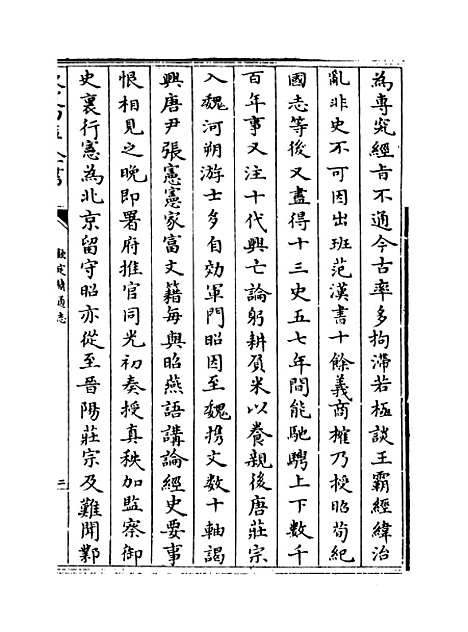 為專究經旨不通今古率多拘滯若極談王霸經緯治
亂非史不可因出班范漢書十餘義商榷乃授昭荀紀
國志等後又盡得十三史五七年間能馳騁上下數千
百年事又注十代興亡論躬耕負米以養親後唐莊宗
入魏河朔游士多自効軍門昭因至魏擕文數十軸謁
興唐尹張憲憲家富文籍每與昭燕語講論經史要事
恨相見之晚即署府推官同光初奏授真秩加監察御
史裏行憲為北京留守昭亦從至晉陽莊宗及難聞鄴
欽定續通志
二